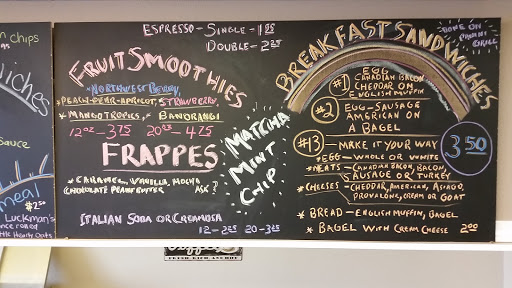 n chips
iches
sauce
meal
$2.50
Luckman's
nce rolled
ttle Hearty Oats
ESPRESSO - SINGLE - 1.95
DOUBLE - 2.25
FRUIT SMOOTHIES
NORTHWEST BERRY,
* PEACH-PEAR-APRICOT, STRAWBERRY
* MANGO TROPICS, * BANORANGI
12oz - 3.75 20oz - 4.75
FRAPPES
* CARAMEL, VANILLA, MOCHA
CHOCOLATE PEANUT BUTTER
ASK?
MATCHA
MINT
CHIP
ITALIAN SODA OR CREAMOSA
12 - 2.25 20 - 3.25
BREAKFAST SANDWICHES
DONE ON
PANINI
GRILL
#1 EGG
CANADIAN BACON
CHEDDAR ON
ENGLISH MUFFIN
#2 EGG - SAUSAGE
AMERICAN ON
A BAGEL
#13 - MAKE IT YOUR WAY
3.50
* EGG - WHOLE OR WHITE
* MEATS - CANADIAN BACON, BACON,
SAUSAGE OR TURKEY
* CHEESES - CHEDDAR, AMERICAN, ASIAGO,
PROVALONE, CREAM OR GOAT
* BREAD - ENGLISH MUFFIN, BAGEL
* BAGEL WITH CREAM CHEESE 2.00